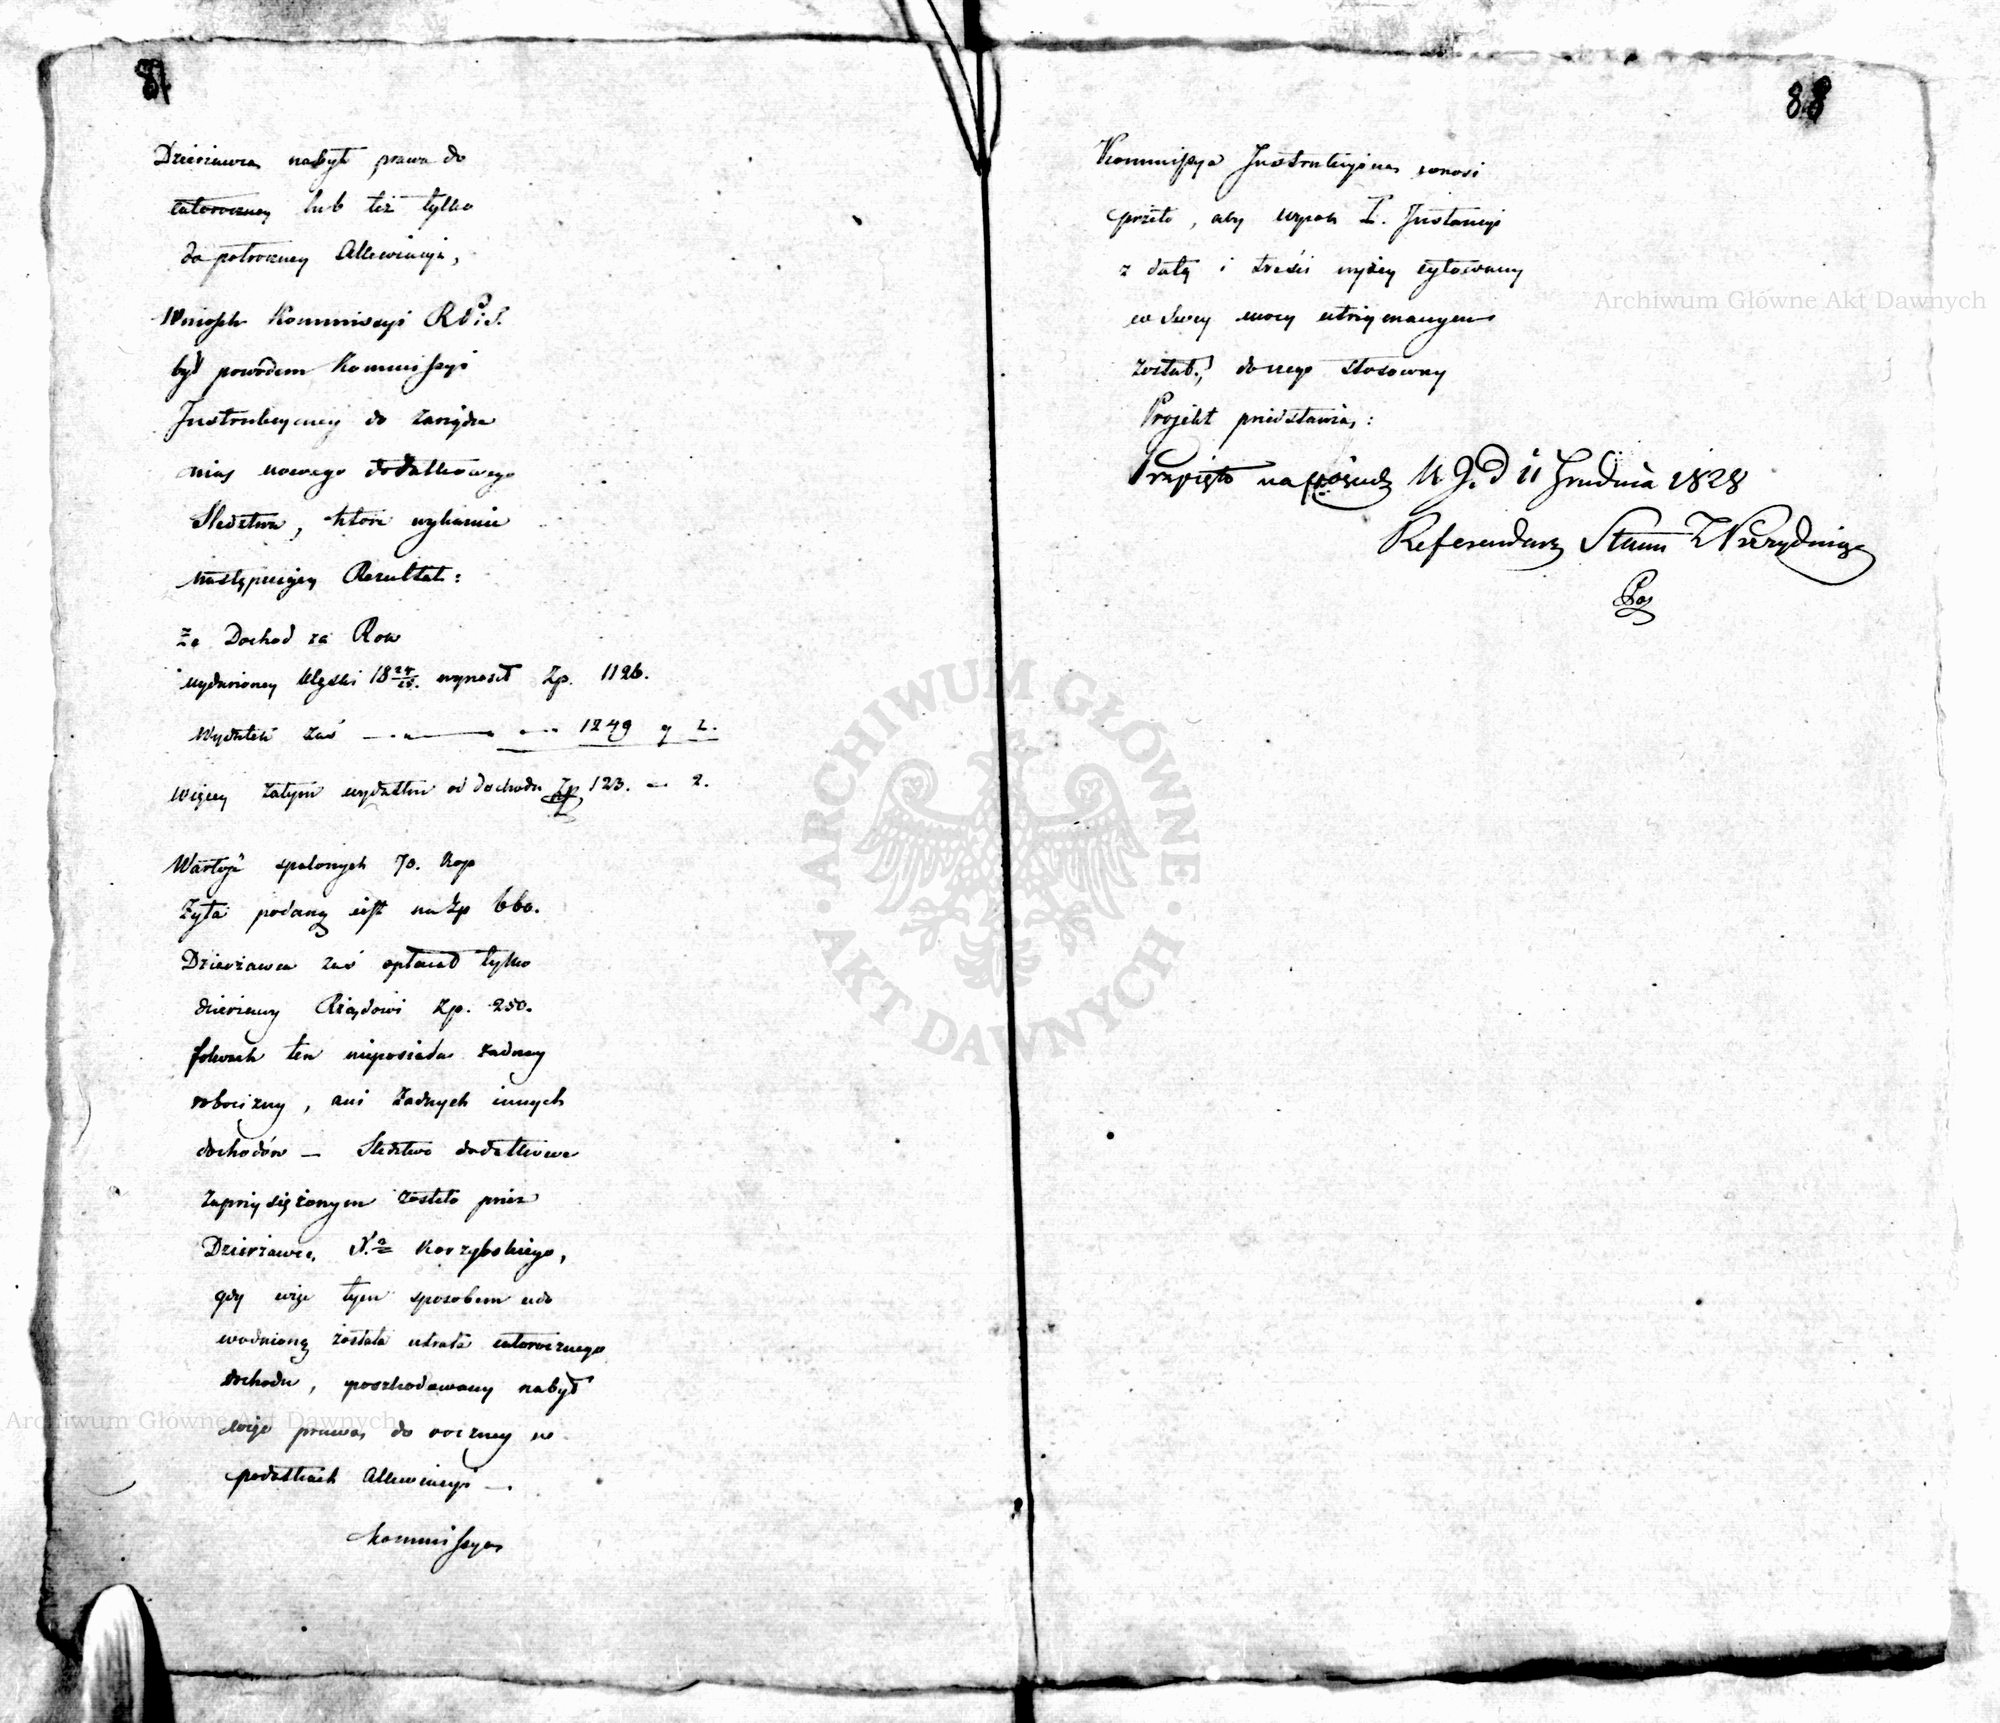 87
Dzierżawca nabył prawa do
całoroczney lub też tylko
do połroczney Allewiacyi,
Wniosek Kommissyi R P i S.
był powodem Kommissyi
Instrukcyiney do zarządze
nia nowego dodatkowego
Śledztwa, które wykazuie
następuiący Rezultat:
Że Dochod za Rok
wydarzoney klęski 18 24/25. wynosił Zp. 1126.
Wydatek zaś — 1249 g 2.
Więcey zatym wydatku od dochodu Zp 123. — 2.
Wartość spalonych 70. kop
Żyta podaną iest na Zp 660.
Dzierżawca zaś opłacał tylko
dzierżawy Rządowi Zp. 250.
folwark ten nieposiada żadney
robocizny, ani żadnych innych
dochodów — Śledztwo dodatkowe
zaprzysiężonym zostało przez
Dzierżawcę, Korzybskiego,
gdy więc tym sposobem udo
wodnioną została utrata całorocznego
dochodu, poszkodowany nabył
więc prawa do roczney w
podatkach Allewiacyi —
Kommissya
88
Kommissya Instrukcyina wnosi
przeto, aby wyrok I. Instancyi
z daty i treści wyżey cytowany
w swey mocy utrzymanym
został, do czego stosowny
Projekt przedstawia:
Przyięto na 11 Grudnia 1828
Referendarz Stanu
Archiwum Główne Akt Dawnych
Archiwum Główne Akt Dawnych
ARCHIWUM GŁÓWNE
AKT DAWNYCH